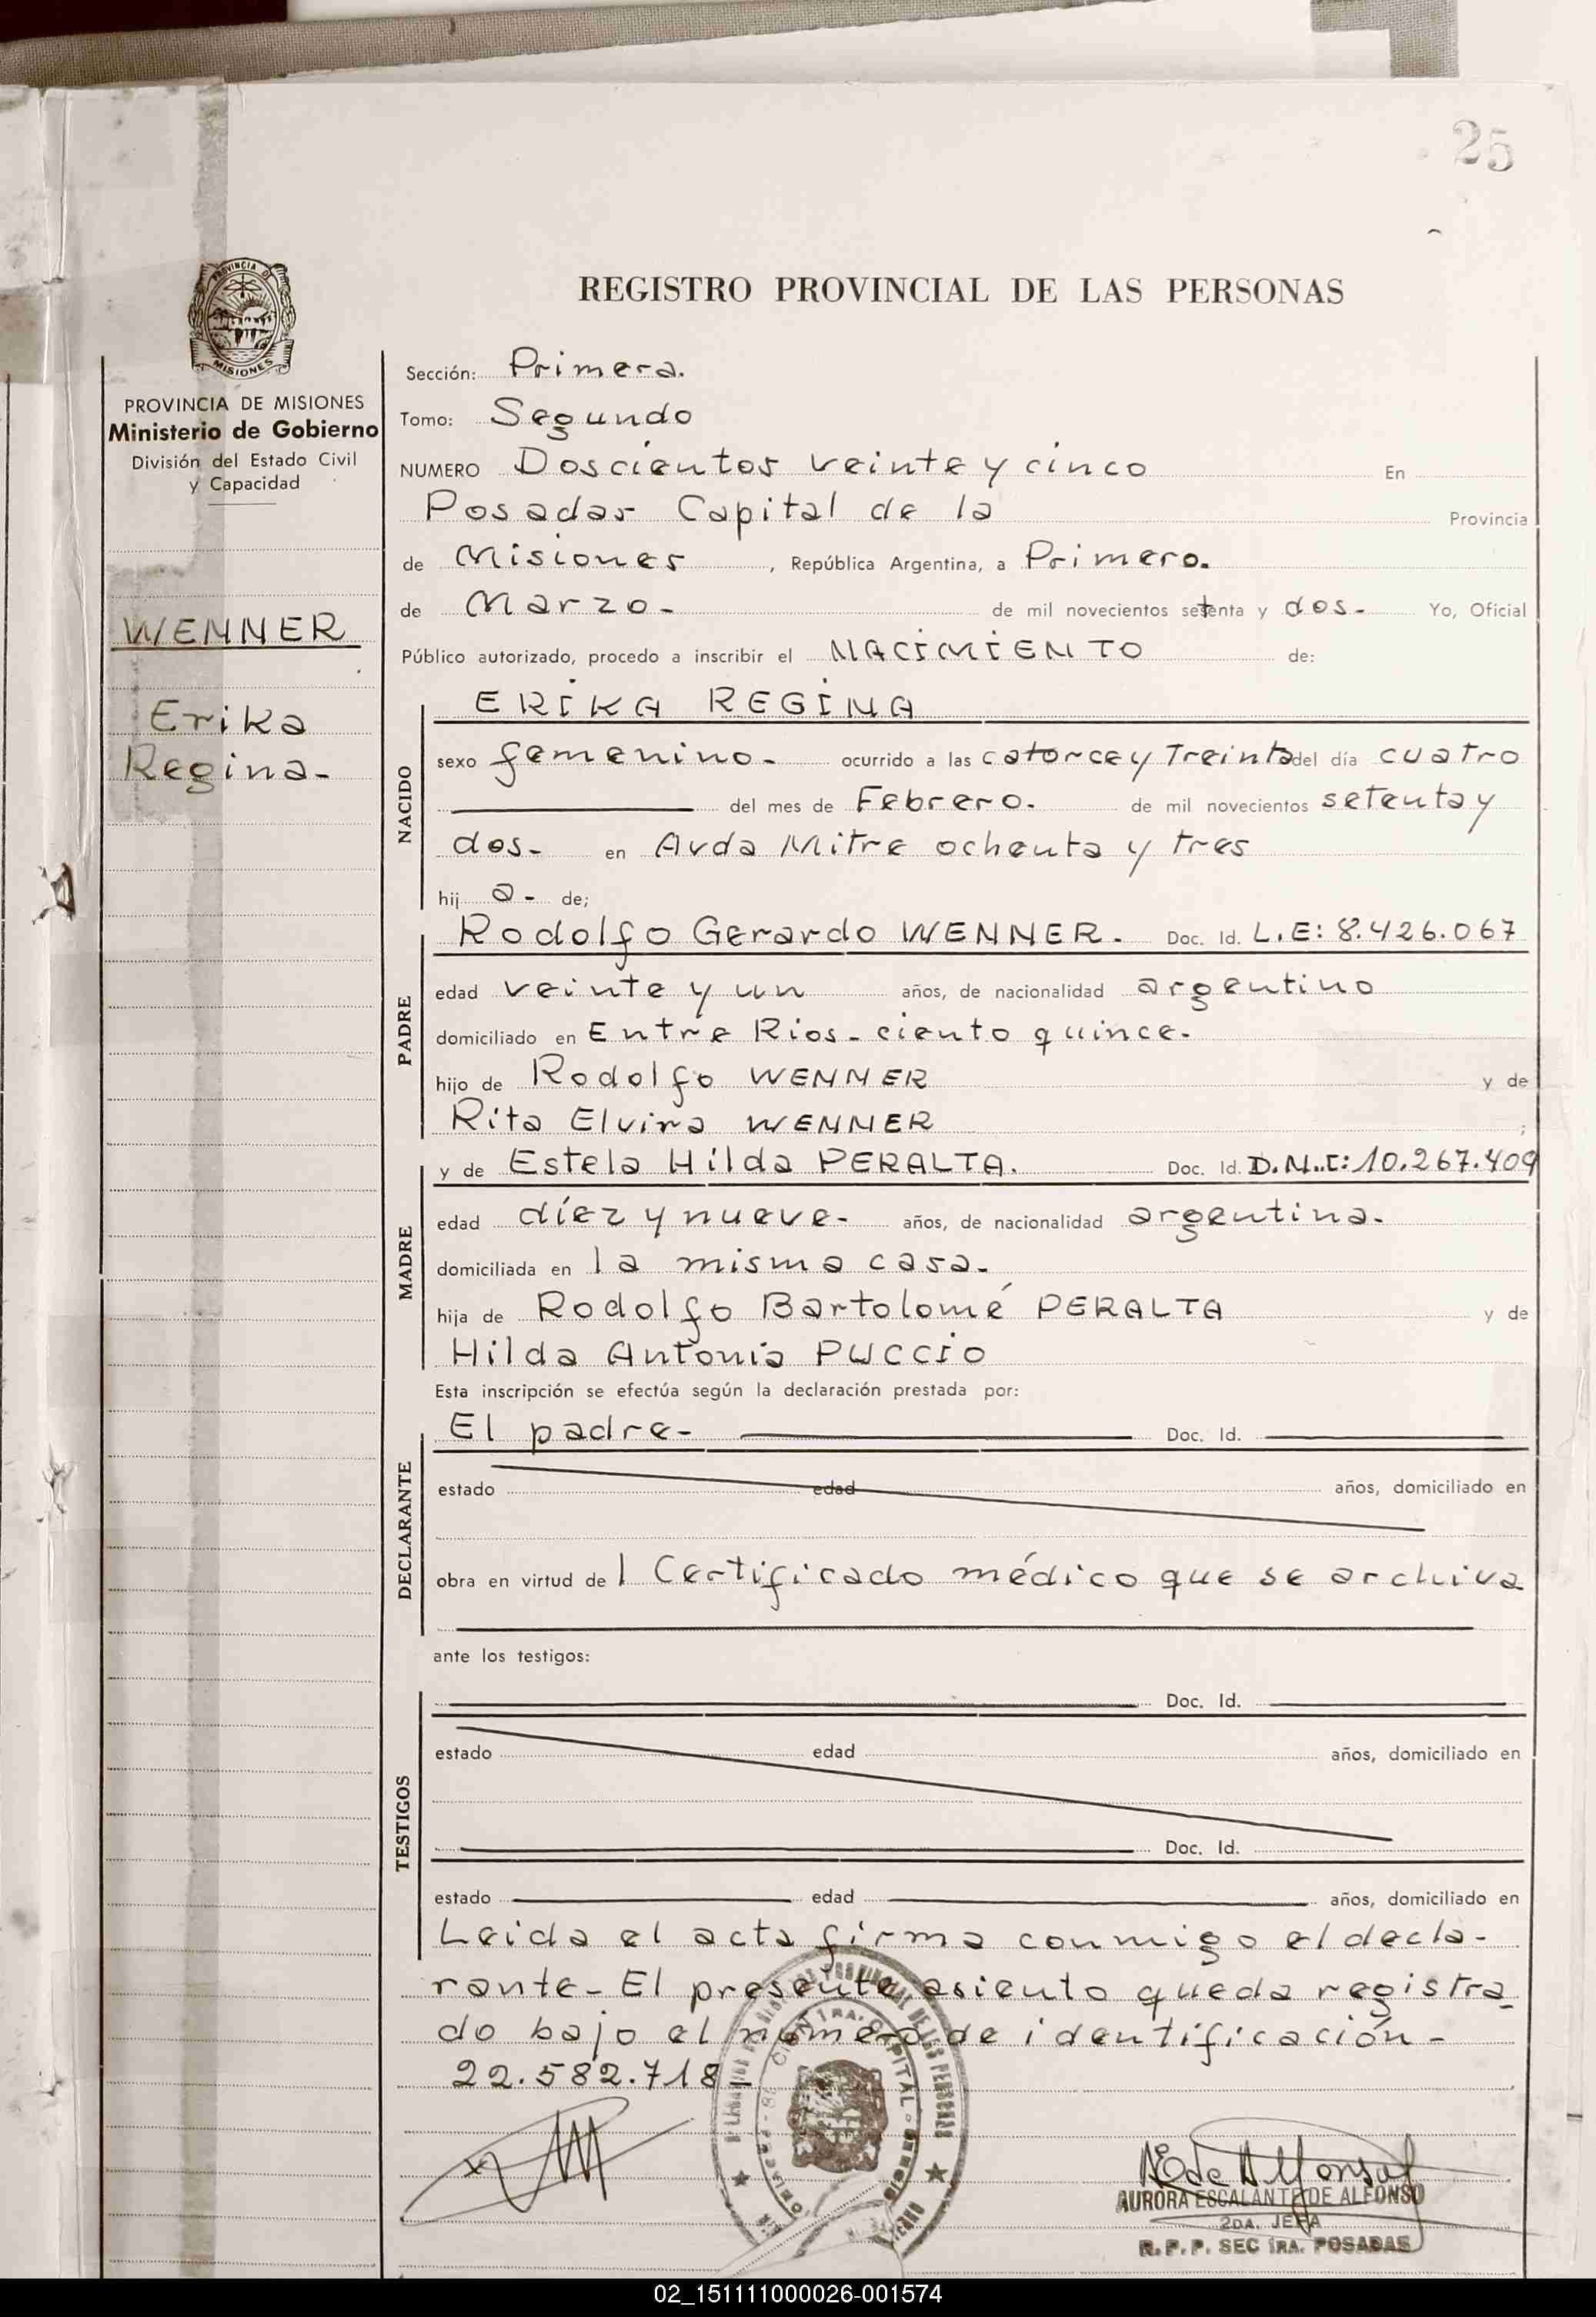 25
REGISTRO PROVINCIAL DE LAS PERSONAS
PROVINCIA DE
MISIONES
PROVINCIA DE MISIONES
Ministerio de Gobierno
División del Estado Civil
y Capacidad
WENNER
Erika
Regina-
Sección: Primera.
Tomo: Segundo
NUMERO Doscientos veinte y cinco En
Posadas Capital de la Provincia
de Misiones, República Argentina, a Primero.
de Marzo- de mil novecientos setenta y dos- Yo, Oficial
Público autorizado, procedo a inscribir el NACIMIENTO de:
NACIDO
ERIKA REGINA
sexo femenino- ocurrido a las catorce y Treinta del día cuatro
del mes de Febrero. de mil novecientos setenta y
dos- en Avda Mitre ochenta y tres
hij a- de;
PADRE
Rodolfo Gerardo WENNER. Doc. Id. L.E: 8.426.067
edad veinte y un años, de nacionalidad argentino
domiciliado en Entre Rios- ciento quince-
hijo de Rodolfo WENNER y de
Rita Elvira WENNER ;
MADRE
y de Estela Hilda PERALTA. Doc. Id. D.N.I: 10.267.409
edad díez y nueve- años, de nacionalidad argentina-
domiciliada en la misma casa-
hija de Rodolfo Bartolomé PERALTA y de
Hilda Antonia PUCCIO
DECLARANTE
Esta inscripción se efectúa según la declaración prestada por:
El padre- Doc. Id.
estado edad años, domiciliado en
obra en virtud de l Certificado médico que se archiva
ante los testigos:
TESTIGOS
Doc. Id.
estado edad años, domiciliado en
Doc. Id.
estado edad años, domiciliado en
Leida el acta firma conmigo el decla-
rante- El presente asiento queda registra-
do bajo el número de identificación-
22.582.718-
AURORA ESCALANTE DE ALFONSO
2DA. JEFA
R.P.P. SEC 1RA. POSADAS
02_151111000026-001574